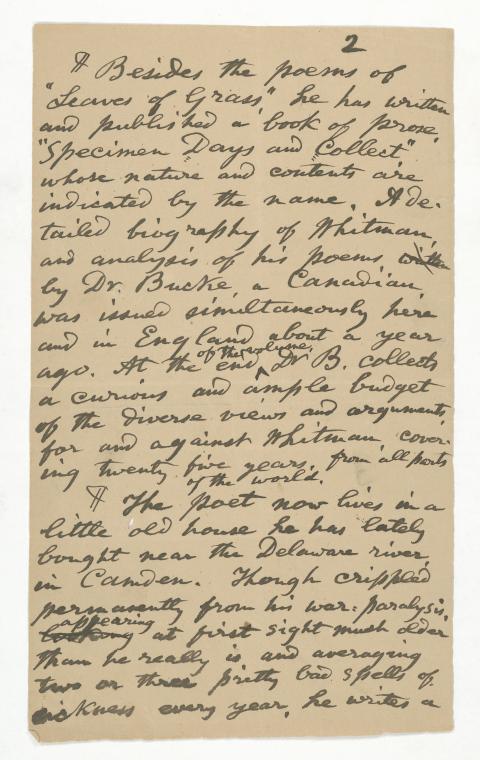 2
¶ Besides the poems of
"Leaves of Grass" he has written
and published a book of prose,
"Specimen Days and Collect"
whose nature and contents are
indicated by the name. A de-
tailed biography of Whitman,
and analysis of his poems
by Dr. Bucke, a Canadian,
was issued simultaneously here
and in England about a year
of the volume,
ago. At the end ^ Dr B. collects
a curious and ample budget
of the diverse views and arguments,
for and against Whitman, cover-
ing twenty five years, from all parts
of the world.
¶ The poet now lives in a
little old house he has lately
bought near the Delaware river,
in Camden. Though crippled
permanently from his war-paralysis,
appearing
looking at first sight much older
than he really is, and averaging
two or three pretty bad spells of
sickness every year, he writes a